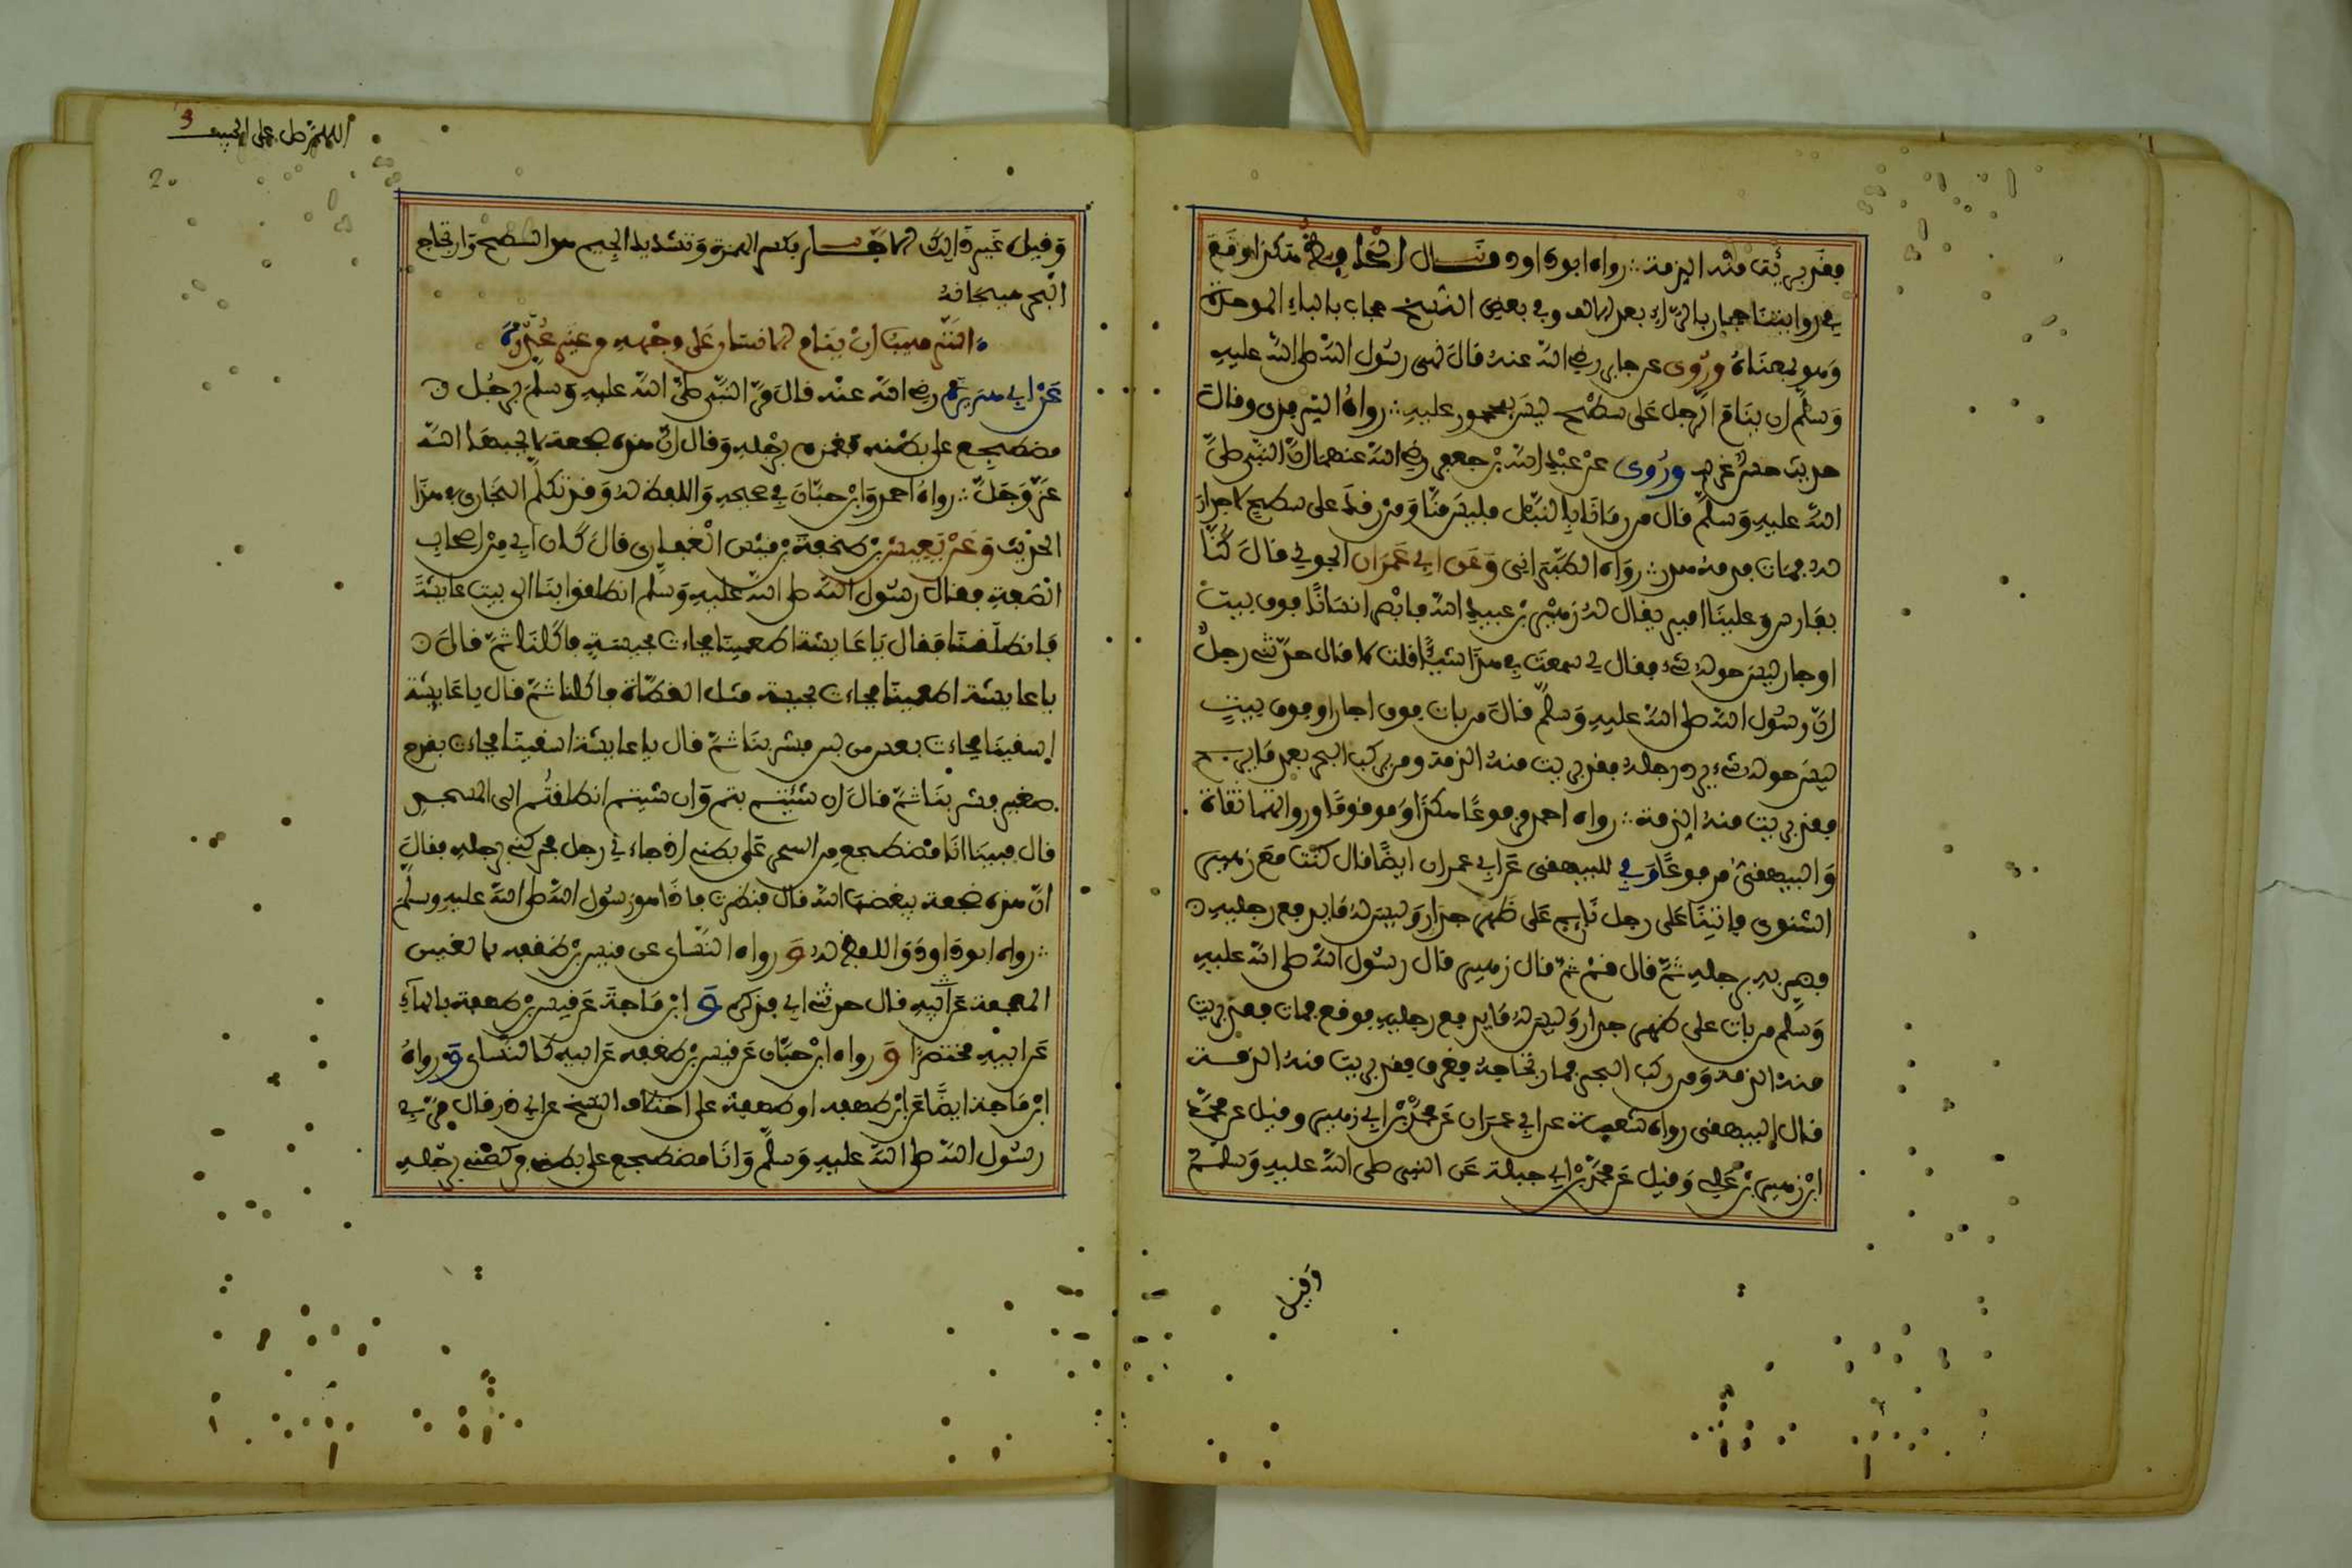 فقد برئت منه الذمة ∴ رواه ابو داود قال الحافظ هكذا وقع
في روايتنا حجار بالراء بعد الالف وفي بعض النسخ حجاب بالباء الموحدة
وهو بمعناه وروى عن جابر رضي الله عنه قال نهى رسول الله صلى الله عليه
وسلم ان ينام الرجل على سطح ليس بمحجور عليه ∴ رواه الترمذي وقال
حديث غريب وروى عن عبد الله بن جعفر رضي الله عنهما ان النبي صلى
الله عليه وسلم قال من رمانا بالنبل فليس منا ومن رقد على سطح لا جدار
له فمات فدمه هدر ∴ رواه الطبراني وعن ابي عمران الجوني قال كنا
بفارس وعلينا امير يقال له زهير بن عبد الله فابصر انسانا فوق بيت
او جار ليس حوله شيء فقال لي سمعت في هذا شيئا قلت لا قال حدثني رجل
ان رسول الله صلى الله عليه وسلم قال من بات فوق اجار او فوق بيت
ليس حوله شيء يرد رجله فقد برئت منه الذمة ومن ركب البحر بعد ما يرتج
فقد برئت منه الذمة ∴ رواه احمد مرفوعا هكذا وموقوفا ورواتهما ثقاة
والبيهقي مرفوعا وفي للبيهقي عن ابي عمران ايضا قال كنت مع زهير
الشنوي فاتينا على رجل نايم على ظهر جدار وليس له ما يدفع رجليه
فضربه برجله ثم قال قم ثم قال زهير قال رسول الله صلى الله عليه
وسلم من بات على ظهر جدار وليس له ما يدفع رجليه فوقع فمات فقد برئت
منه الذمة ومن ركب البحر في ارتجاجه فغرق فقد برئت منه الذمة
قال البيهقي رواه شعبة عن ابي عمران عن محمد بن ابي زهير وقيل عن محمد
ابن زهير بن علي وقيل عن محمد بن ابي جبلة عن النبي صلى الله عليه وسلم
وقيل
اللهم صل على الحبيب 3
وقيل غير ذالك الاجار بكسر الهمزة وتشديد الجيم هو السطح وارتجاج
البحر هيجانه
الترهيب ان ينام الانسان على وجهه من غير عذر
عن ابي هريرة رضي الله عنه قال مر النبي صلى الله عليه وسلم برجل
مضطجع على بطنه فغمزه برجله وقال ان هذه ضجعة لا يحبها الله
عز وجل ∴ رواه احمد وابن حبان في صحيحه واللفظ له وقد تكلم البخاري في هذا
الحديث وعن يعيش بن طخفة بن قيس الغفاري قال كان ابي من اصحاب
الصفة فقال رسول الله صلى الله عليه وسلم انطلقوا بنا الى بيت عايشة
فانطلقنا فقال يا عايشة اطعمينا فجاءت بجيشة فاكلنا ثم قال
يا عايشة اطعمينا فجاءت بحيسة مثل القطاة فاكلنا ثم قال يا عايشة
اسقينا فجاءت بعس من لبن فشربنا ثم قال يا عايشة اسقينا فجاءت بقدح
صغير فشربنا ثم قال ان شئتم بتم وان شيتم انطلقتم الى المسجد
قال فبينا انا مضطجع من السحر على بطني اذ جاءني رجل يحركني برجله فقال
ان هذه ضجعة يبغضها الله قال فنظرت فاذا هو رسول الله صلى الله عليه وسلم
∴ رواه ابو داود واللفظ له و رواه النساي عن قيس بن طغفه بالغين
المعجمة عن ابيه قال حدثني ابي فذكره و ابن ماجة عن قيس بن طهفة بالهاء
عن ابيه مختصرا و رواه ابن حبان عن قيس بن طغفه عن ابيه كالنساي و رواه
ابن ماجة ايضا عن ابن طهفه او طغفة على اختلاف النسخ عن ابي ذر قال مر بي
رسول الله صلى الله عليه وسلم وانا مضطجع على بطني فركضني برجله